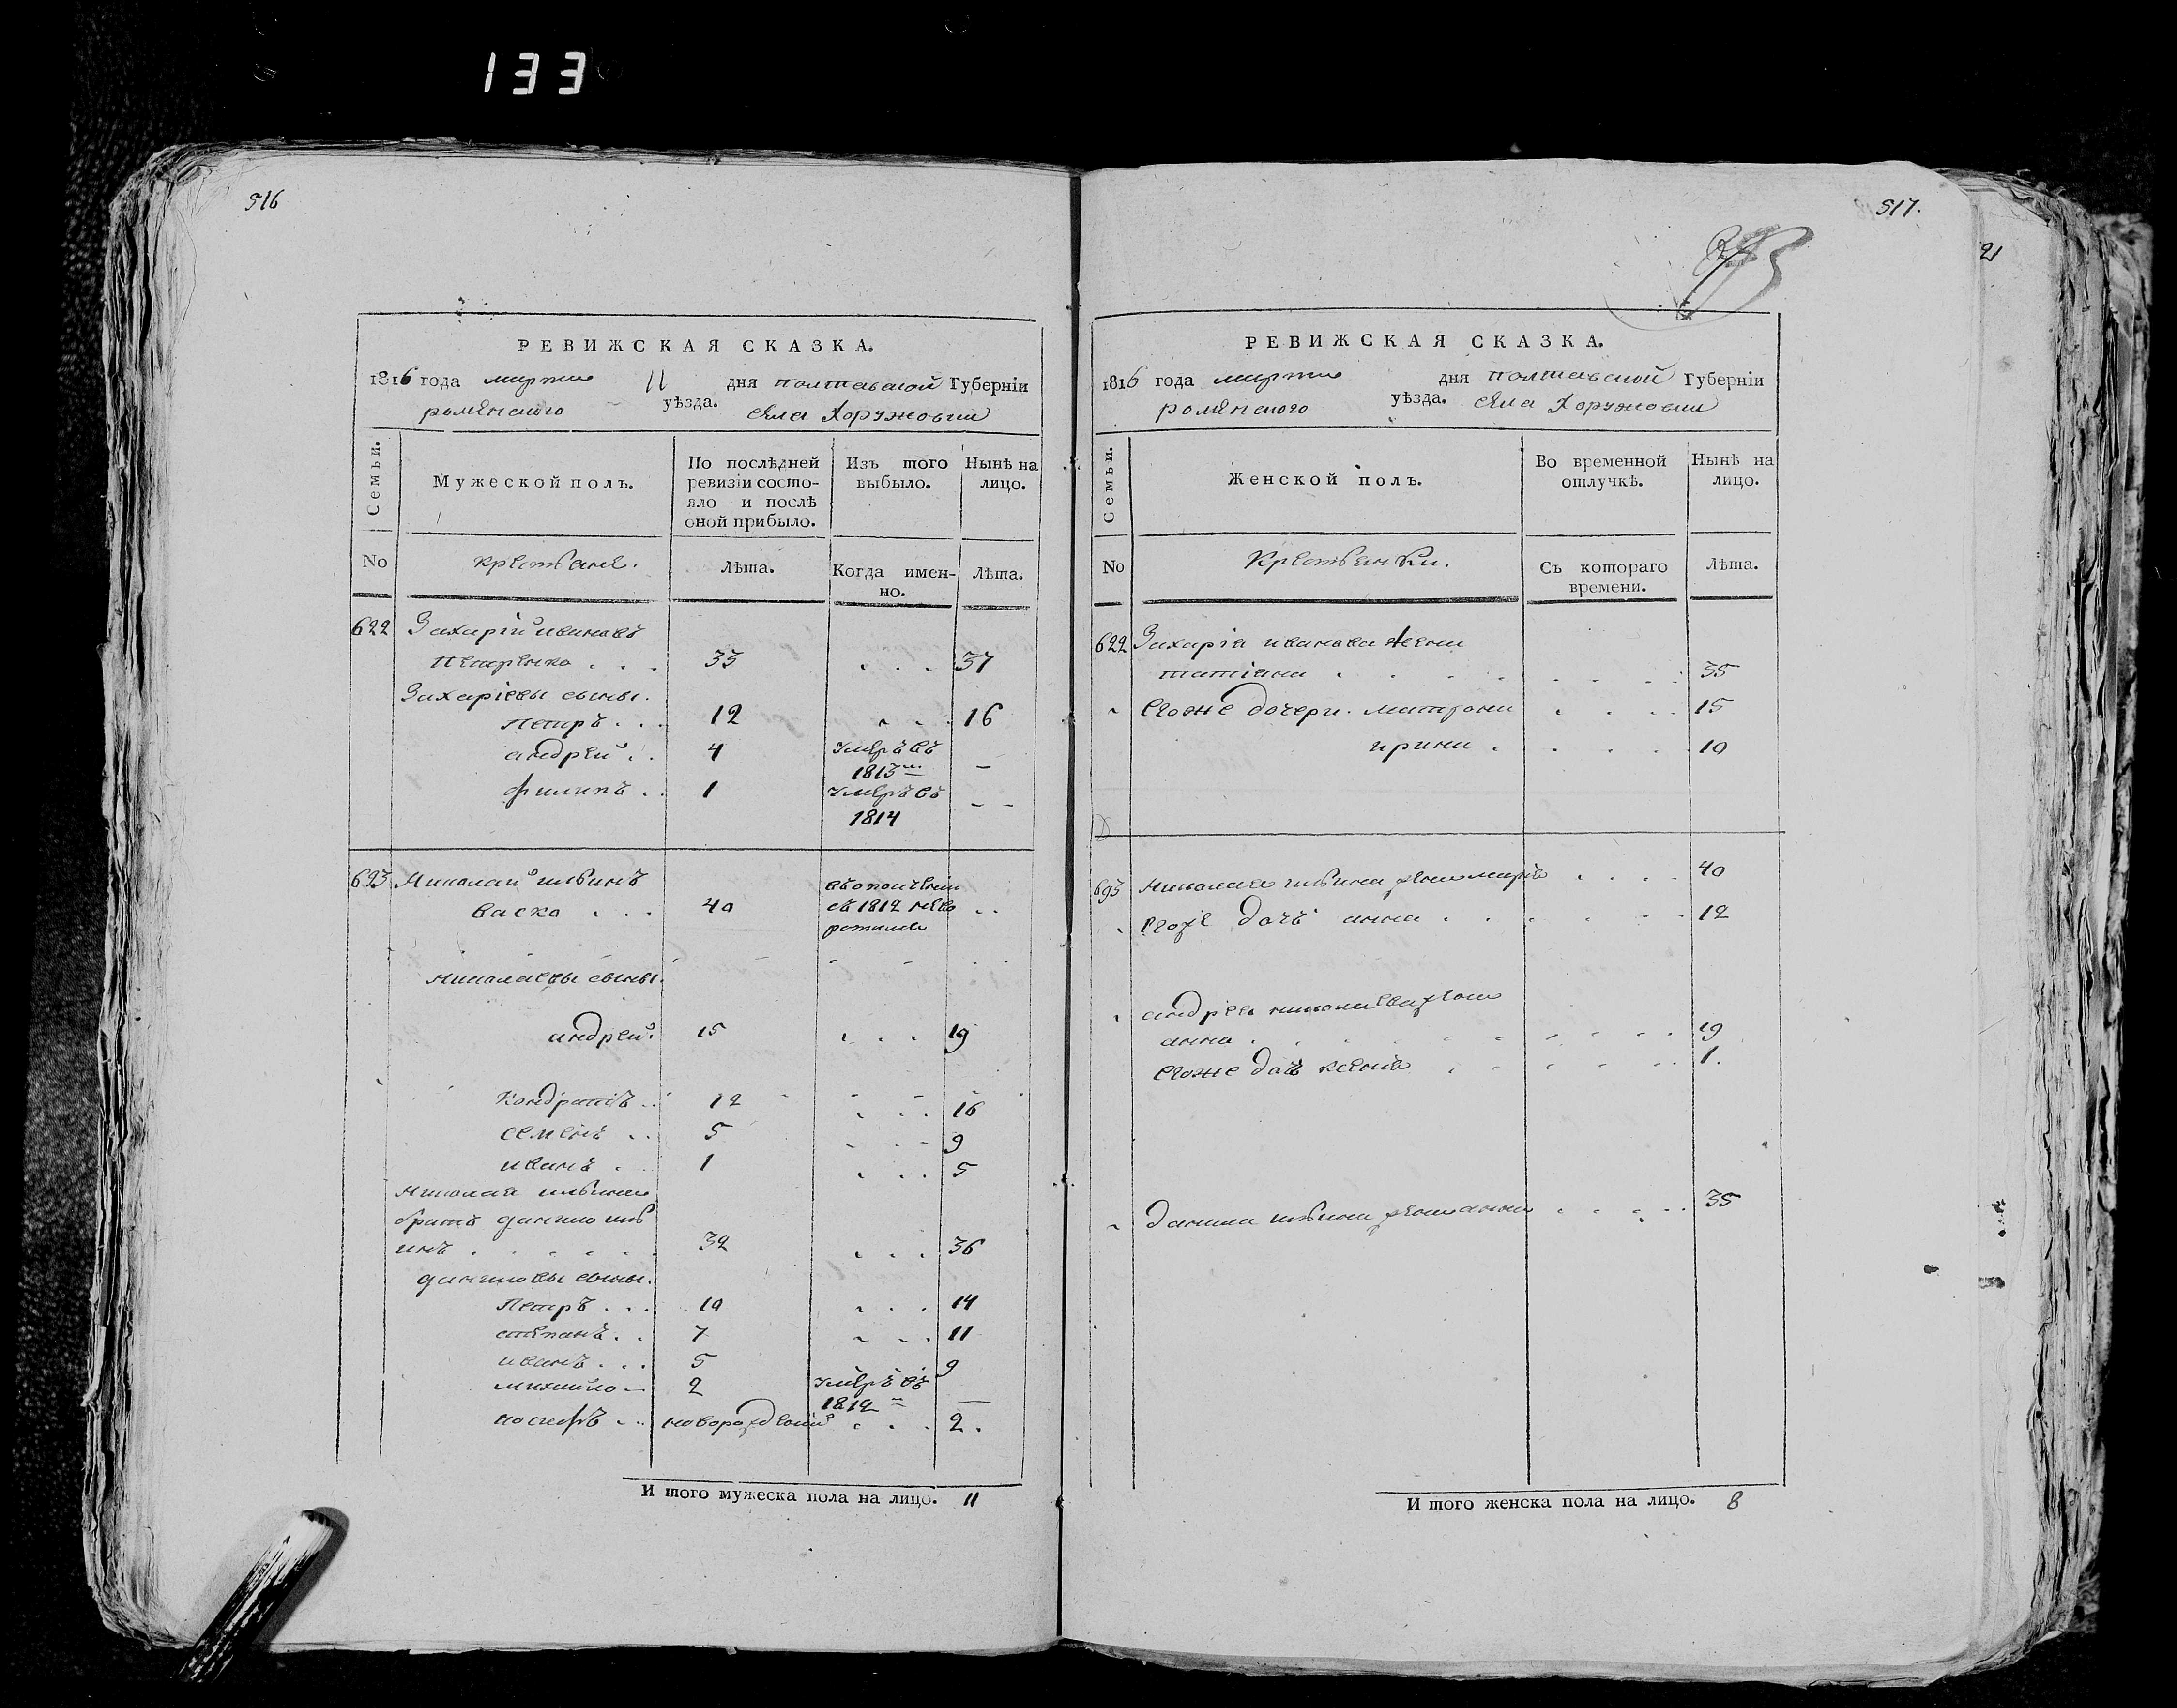 133
516
РЕВИЖСКАЯ СКАЗКА.
1816 года марта 11 дня полтавской Губерніи
роменского уѣзда. села Хоружовки
Семьи.
Мужеской полъ.
По послѣдней ревизіи состо-
яло и послѣ
оной прибыло.
Изъ того
выбыло.
Нынѣ на
лицо.
No
крестьяне.
Лѣта.
Когда имен-
но.
Лѣта.
622 Захарій ивановъ
петренко . . . 33 . . . 37
Захаріевы сыны.
Петръ . . . 12 . . . 16
андрей . . 4 умеръ въ
1813м —
филипъ . . 1 умеръ въ
1814 — —
623 Николай ильинъ
васко . . . 40 въ 1812 . .
николаевы сыны.
андрей. 15 . . . 19
Кондратъ . . 12 . . . 16
семенъ . . 5 . . . 9
иванъ . 1 . . . 5
Николая ильина
братъ данило иль
инъ . . . . . 32 . . . 36
даниловы сыны.
Петръ . . . 10 . . . 14
степанъ . . 7 . . . 11
иванъ . . . 5 9
михайло — 2 умеръ въ
1812 —
иосифъ . . . новорожденій . . . 2.
И того мужеска пола на лицо. 11
517.
21
РЕВИЖСКАЯ СКАЗКА.
1816 года марта дня полтавской Губерніи
роменского уѣзда. села Хоружовки
Семьи.
Женской полъ.
Во временной
отлучкѣ.
Нынѣ на
лицо.
No
Крестьянки.
Съ котораго
времени.
Лѣта.
622 Захарія иванова жена
татіана . . . . . . . 35
егоже дочери. матрона . . . . 15
ирина . . . . . 10
623 николая ильина жена марія . . . . 40
егоже дочь анна . . . . . . 12
андрея николаева жена
анна . . . . . . . . . 19
егоже дочь ксенія . . . . . . 1.
данила ильина жена анна . . . . . 35
И того женска пола на лицо. 8